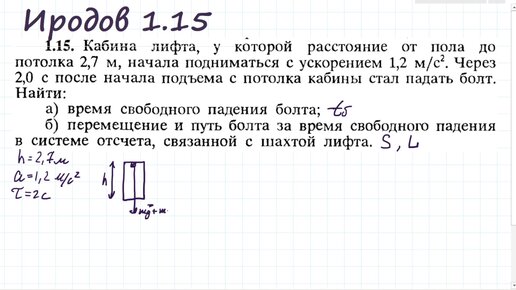 Иродов 1.15
1.15. Кабина лифта, у которой расстояние от пола до
потолка 2,7 м, начала подниматься с ускорением 1,2 м/с². Через
2,0 с после начала подъема с потолка кабины стал падать болт.
Найти:
а) время свободного падения болта; tб
б) перемещение и путь болта за время свободного падения
в системе отсчета, связанной с шахтой лифта. S, L
h=2,7м
a=1,2 м/с²
τ=2с
h
mg+m